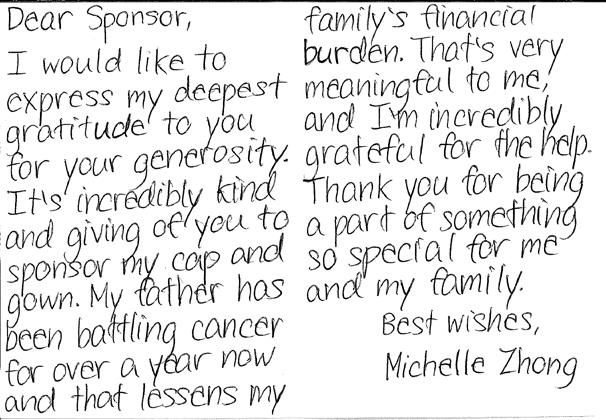 Dear Sponsor,
I would like to
express my deepest
gratitude to you
for your generosity.
It's incredibly kind
and giving of you to
sponsor my cap and
gown. My father has
been battling cancer
for over a year now
and that lessens my
family's financial
burden. That's very
meaningful to me,
and I'm incredibly
grateful for the help.
Thank you for being
a part of something
so special for me
and my family.
Best wishes,
Michelle Zhong